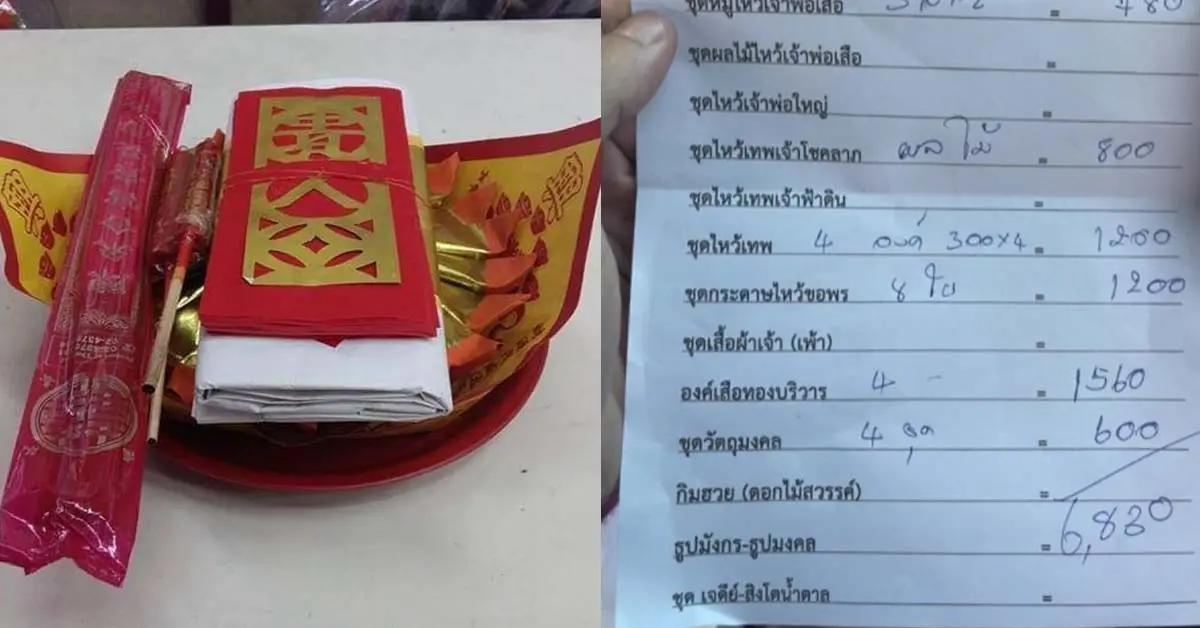 貴人
ชุดหมูไหว้เจ้าพ่อเสือ = 480
ชุดผลไม้ไหว้เจ้าพ่อเสือ =
ชุดไหว้เจ้าพ่อใหญ่ =
ชุดไหว้เทพเจ้าโชคลาภ ผลไม้ = 800
ชุดไหว้เทพเจ้าฟ้าดิน =
ชุดไหว้เทพ 4 องค์ 300x4 = 1200
ชุดกระดาษไหว้ขอพร 8 ใบ = 1200
ชุดเสื้อผ้าเจ้า (เพ้า) =
องค์เสือทองบริวาร 4 - = 1560
ชุดวัตถุมงคล 4 ชุด = 600
กิมฮวย (ดอกไม้สวรรค์) =
ธูปมังกร-ธูปมงคล = 6,830
ชุด เจดีย์-สิงโตน้ำตาล =